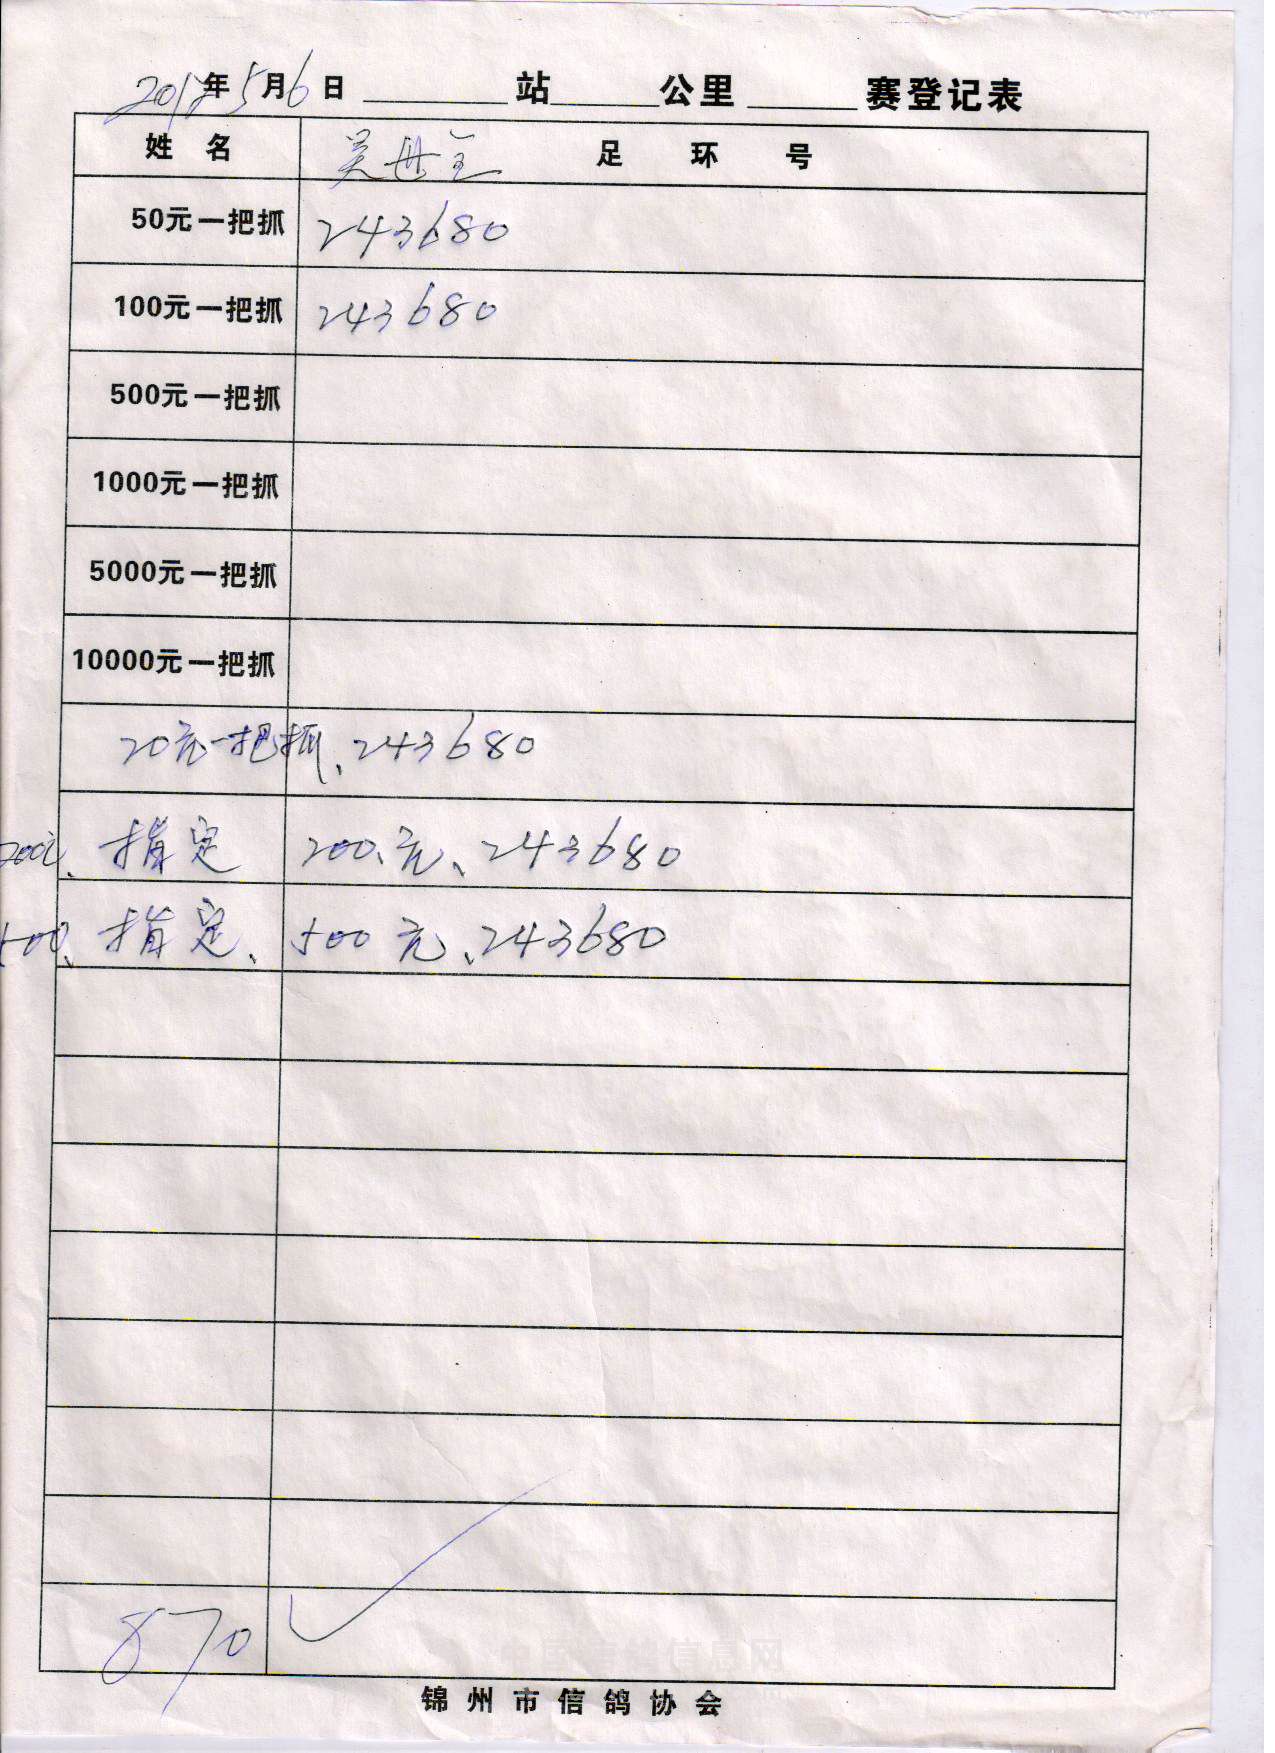 2012年5月6日 ______站______公里______赛登记表
姓 名 吴丹 足 环 号
50元一把抓 243680
100元一把抓 243680
500元一把抓
1000元一把抓
5000元一把抓
10000元一把抓
20元一把抓、243680
200元、指定 200元、243680
500、指定、500元、243680
870
锦州市信鸽协会